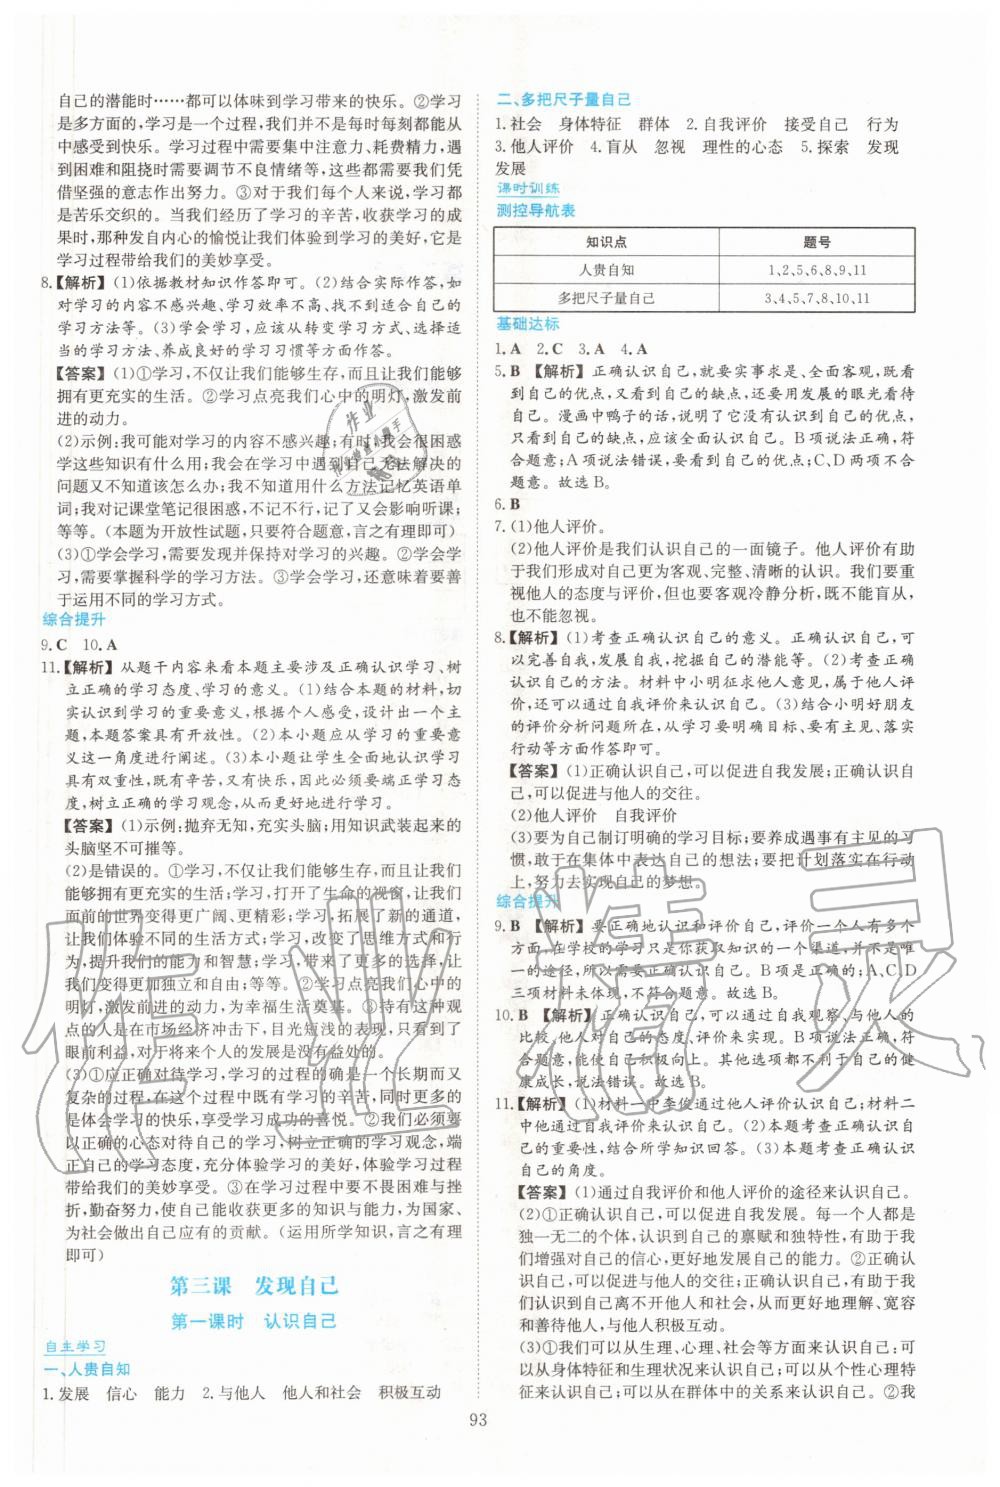 自己的潜能时……都可以体味到学习带来的快乐。②学习
是多方面的,学习是一个过程,我们并不是每时每刻都能从
中感受到快乐。学习过程中需要集中注意力、耗费精力,遇
到困难和阻挠时需要调节不良情绪等,这时候需要我们凭
借坚强的意志作出努力。③对于我们每个人来说,学习都
是苦乐交织的。当我们经历了学习的辛苦,收获学习的成
果时,那种发自内心的愉悦让我们体验到学习的美好,它是
学习过程带给我们的美妙享受。
8.【解析】(1)依据教材知识作答即可。(2)结合实际作答,如
对学习的内容不感兴趣、学习效率不高、找不到适合自己的
学习方法等。(3)学会学习,应该从转变学习方式、选择适
当的学习方法、养成良好的学习习惯等方面作答。
【答案】(1)①学习,不仅让我们能够生存,而且让我们能够
拥有更充实的生活。②学习点亮我们心中的明灯,激发前
进的动力。
(2)示例:我可能对学习的内容不感兴趣;有时,我会很困惑
学这些知识有什么用;我会在学习中遇到自己无法解决的
问题又不知道该怎么办;我不知道用什么方法记忆英语单
词;我对记课堂笔记很困惑,不记不行,记了又会影响听课;
等等。(本题为开放性试题,只要符合题意,言之有理即可)
(3)①学会学习,需要发现并保持对学习的兴趣。②学会学
习,需要掌握科学的学习方法。③学会学习,还意味着要善
于运用不同的学习方式。
综合提升
9.C 10.A
11.【解析】从题干内容来看本题主要涉及正确认识学习、树
立正确的学习态度、学习的意义。(1)结合本题的材料,切
实认识到学习的重要意义,根据个人感受,设计出一个主
题,本题答案具有开放性。(2)本小题应从学习的重要意
义这一角度进行阐述。(3)本小题让学生全面地认识学习
具有双重性,既有辛苦,又有快乐,因此必须要端正学习态
度,树立正确的学习观念,从而更好地进行学习。
【答案】(1)示例:抛弃无知,充实头脑;用知识武装起来的
头脑坚不可摧等。
(2)是错误的。①学习,不仅让我们能够生存,而且让我们
能够拥有更充实的生活;学习,打开了生命的视窗,让我们
面前的世界变得更广阔、更精彩;学习,拓展了新的通道,
让我们体验不同的生活方式;学习,改变了思维方式和行
为,提升我们的能力和智慧;学习,带来了更多的选择,让
我们变得更加独立和自由;等等。②学习点亮我们心中的
明灯,激发前进的动力,为幸福生活奠基。③持有这种观
点的人是在市场经济冲击下,目光短浅的表现,只看到了
眼前利益,对于将来个人的发展是没有益处的。
(3)①应正确对待学习,学习的过程的确是一个长期而又
复杂的过程,在这个过程中既有学习的辛苦,同时更多的
是体会学习的快乐,享受学习成功的喜悦。②我们必须要
以正确的心态对待自己的学习,树立正确的学习观念,端
正自己的学习态度,充分体验学习的美好,体验学习过程
带给我们的美妙享受。③在学习过程中不要畏困难与挫
折,勤奋努力,使自己能收获更多的知识与能力,为国家、
为社会做出自己应有的贡献。(运用所学知识,言之有理
即可)
第三课 发现自己
第一课时 认识自己
自主学习
一、人贵自知
1.发展 信心 能力 2.与他人 他人和社会 积极互动
二、多把尺子量自己
1.社会 身体特征 群体 2.自我评价 接受自己 行为
3.他人评价 4.盲从 忽视 理性的心态 5.探索 发现
发展
课时训练
测控导航表
知识点 题号
人贵自知 1,2,5,6,8,9,11
多把尺子量自己 3,4,5,7,8,10,11
基础达标
1.A 2.C 3.A 4.A
5.B 【解析】正确认识自己,就要实事求是、全面客观,既看
到自己的优点,又看到自己的缺点,还要用发展的眼光看待
自己。漫画中鸭子的话,说明了它没有认识到自己的优点,
只看到自己的缺点,应该全面认识自己。B项说法正确,符
合题意;A项说法错误,要看到自己的优点;C、D两项不合
题意。故选B。
6.B
7.(1)他人评价。
(2)他人评价是我们认识自己的一面镜子。他人评价有助
于我们形成对自己更为客观、完整、清晰的认识。我们要重
视他人的态度与评价,但也要客观冷静分析,既不能盲从,
也不能忽视。
8.【解析】(1)考查正确认识自己的意义。正确认识自己可以
完善自我,发展自我,挖掘自己的潜能等。(2)考查正确认
识自己的方法。材料中小明征求他人意见,属于他人评
价,还可以通过自我评价来认识自己。(3)结合小明好朋友
的评价分析问题所在,从学习要明确目标、要有主见、落实
行动等方面作答即可。
【答案】(1)正确认识自己,可以促进自我发展;正确认识自
己,可以促进与他人的交往。
(2)他人评价 自我评价
(3)要为自己制订明确的学习目标;要养成遇事有主见的习
惯,敢于在集体中表达自己的想法;要把计划落实在行动
上,努力去实现自己的梦想。
综合提升
9.B 【解析】要正确地认识和评价自己,评价一个人有多个
方面,在学校的学习只是你获取知识的一个渠道,并不是唯
一的途径,所以需要正确认识自己。B项是正确的;A、C、D
三项材料未体现,不符合题意。故选B。
10.B 【解析】正确认识自己,可以通过自我观察、与他人的
比较、他人对自己的态度、评价来实现。B项说法正确,符
合题意,能使自己积极向上。其他选项都不利于自己的健
康成长,说法错误。故选B。
11.【解析】(1)材料一中李俊通过他人评价认识自己;材料二
中他通过自我评价来认识自己。(2)本题考查正确认识自
己的重要性,结合所学知识回答。(3)本题考查正确认识
自己的角度。
【答案】(1)通过自我评价和他人评价的途径来认识自己。
(2)①正确认识自己,可以促进自我发展。每一个人都是
独一无二的个体,认识到自己的禀赋和独特性,有助于我
们增强自己的信心,更好地发展自己的能力。②正确认
识自己,可以促进与他人的交往。正确认识自己,可以认
识到自己离不开他人和社会,从而更好地理解、宽容
和善待他人,与他人积极互动。
(3)①我们可以从生理、心理、社会等方面来认识自己:可
以从身体特征和生理状况来认识自己,从个性心理特
征来认识自己,可以从在群体中的关系来认识自己。②我
93
作业精灵